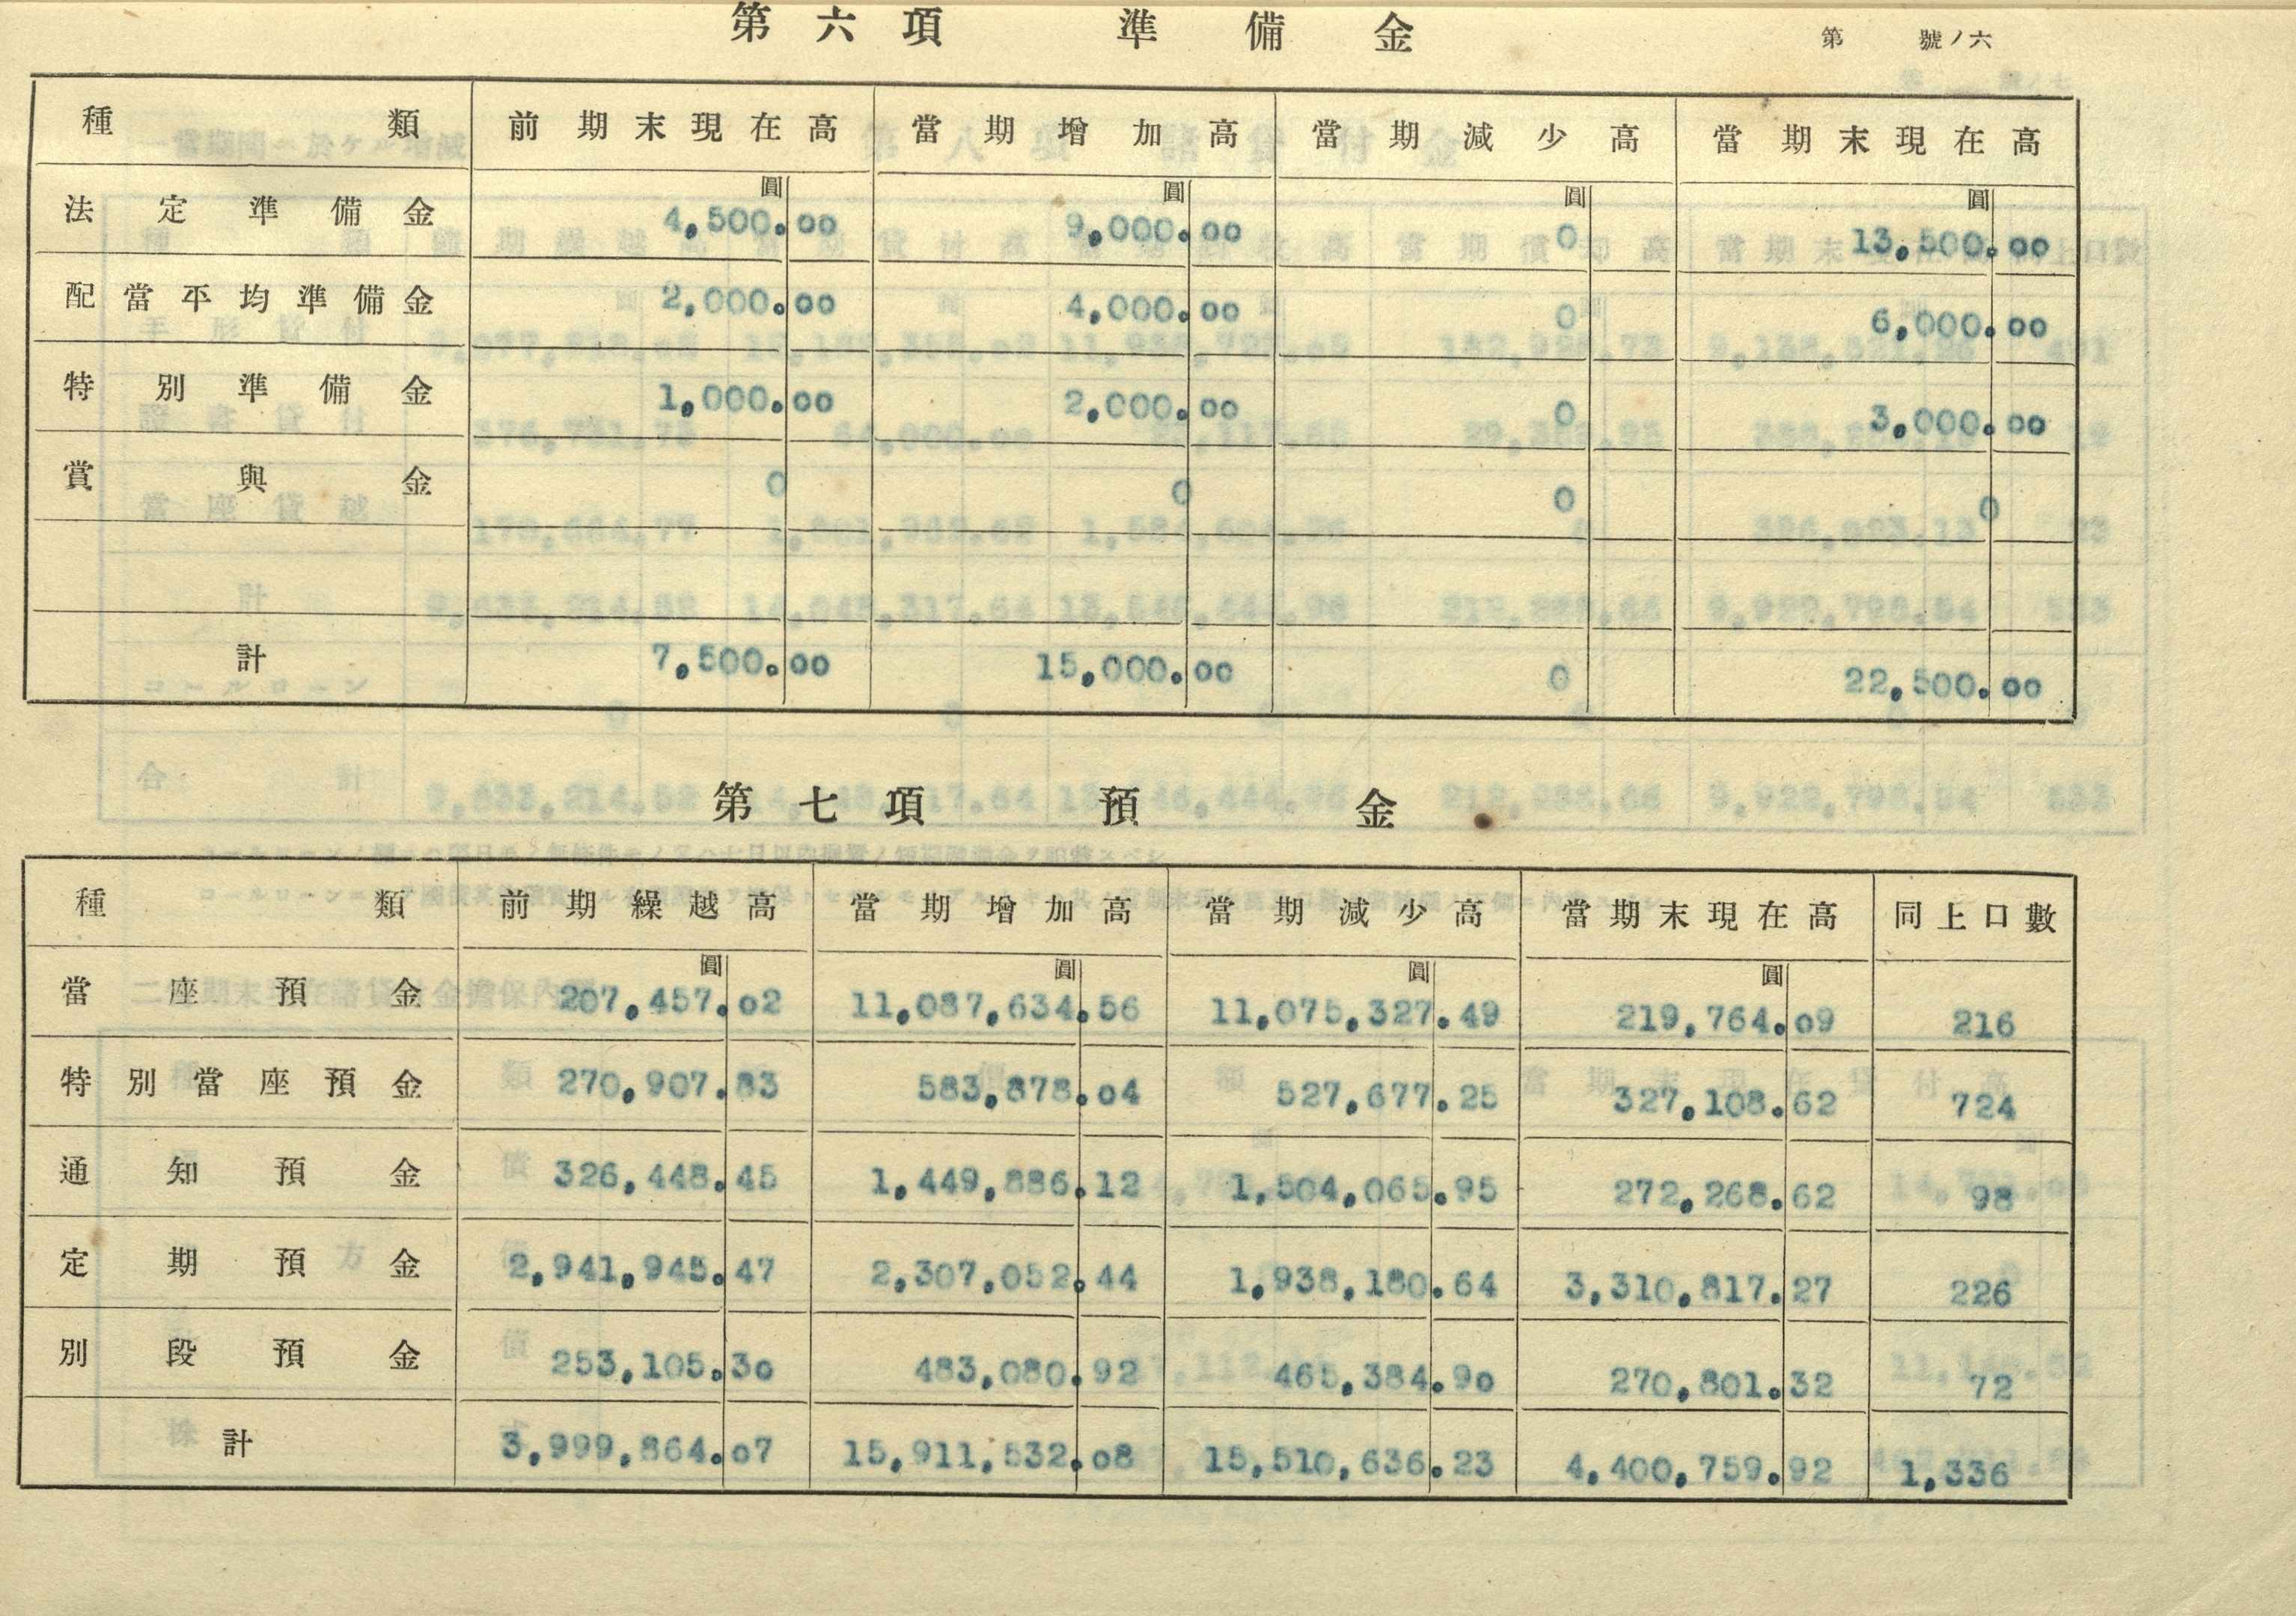 第六項 準備金
第 號ノ六
種類 前期末現在高 當期增加高 當期減少高 當期末現在高
圓 圓 圓 圓
法定準備金 4,500.00 9,000.00 0 13,500.00
配當平均準備金 2,000.00 4,000.00 0 6,000.00
特別準備金 1,000.00 2,000.00 0 3,000.00
賞與金 0 0 0 0
計 7,500.00 15,000.00 0 22,500.00
第七項 預金
種類 前期繰越高 當期增加高 當期減少高 當期末現在高 同上口數
圓 圓 圓 圓
當座預金 207,457.02 11,087,634.56 11,075,327.49 219,764.09 216
特別當座預金 270,907.83 583,878.04 527,677.25 327,108.62 724
通知預金 326,448.45 1,449,886.12 1,504,065.95 272,268.62 98
定期預金 2,941,945.47 2,307,052.44 1,938,180.64 3,310,817.27 226
別段預金 253,105.30 483,080.92 465,384.90 270,801.32 72
計 3,999,864.07 15,911,532.08 15,510,636.23 4,400,759.92 1,336